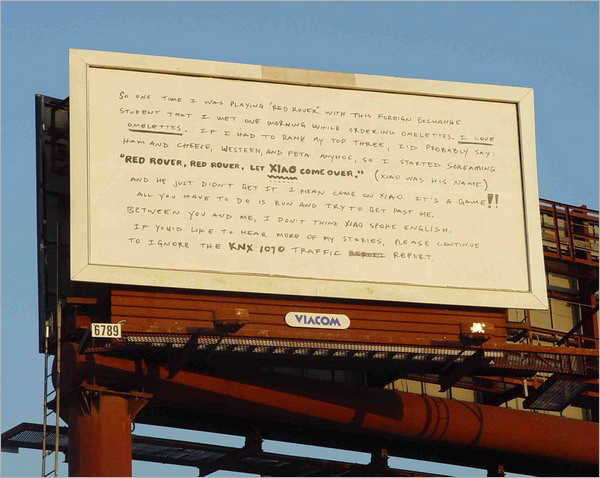 SO ONE TIME I WAS PLAYING "RED ROVER" WITH THIS FOREIGN EXCHANGE
STUDENT THAT I MET ONE MORNING WHILE ORDERING OMELETTES. I LOVE
OMELETTES. IF I HAD TO RANK MY TOP THREE, I'D PROBABLY SAY:
HAM AND CHEESE, WESTERN, AND FETA. ANYHOO, SO I STARTED SCREAMING
"RED ROVER, RED ROVER, LET XIAO COME OVER." (XIAO WAS HIS NAME.)
AND HE JUST DIDN'T GET IT. I MEAN COME ON XIAO. IT'S A GAME!!
ALL YOU HAVE TO DO IS RUN AND TRY TO GET PAST ME.
BETWEEN YOU AND ME, I DON'T THINK XIAO SPOKE ENGLISH.
IF YOU'D LIKE TO HEAR MORE OF MY STORIES, PLEASE CONTINUE
TO IGNORE THE KNX 1070 TRAFFIC REPORT.
VIACOM
6789